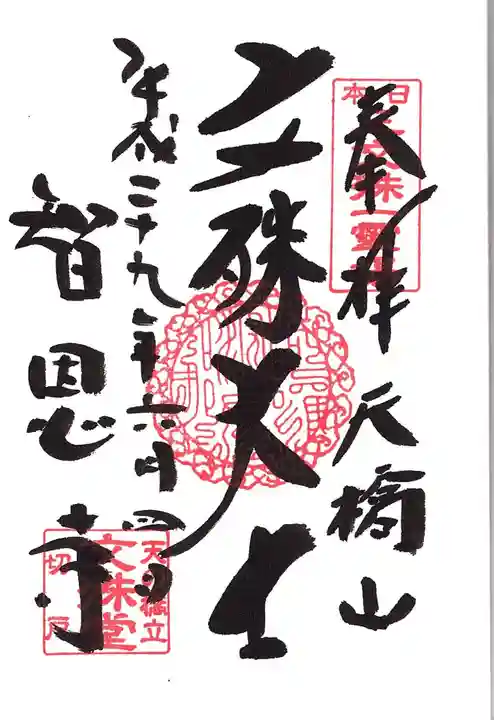 奉拝 天橋山
日本三文殊一霊場
文殊大士
平成二十九年六月四日
智恩寺
天橋立
文殊堂
切戸